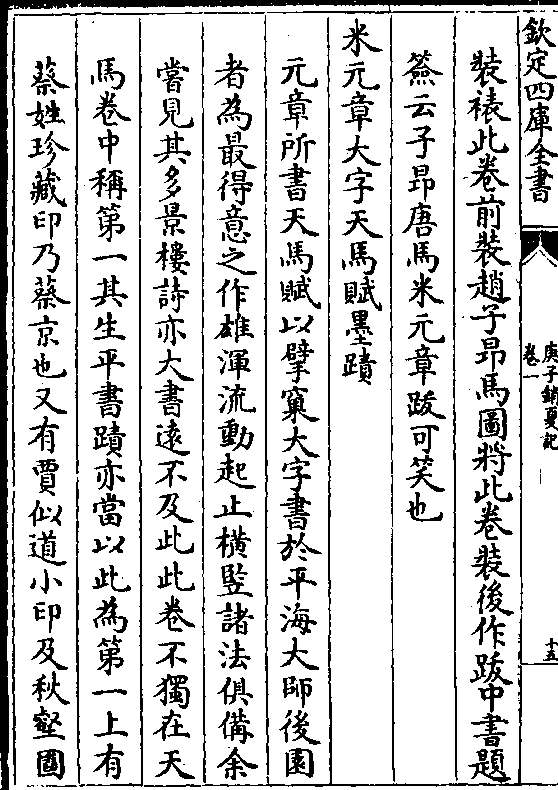 欽定四庫全書
庚子銷夏記
卷一
十五
裝裱此卷前裝趙子昂馬圖將此卷裝後作跋中書題
簽云子昂唐馬米元章跋可笑也
米元章大字天馬賦墨蹟
元章所書天馬賦以擘窠大字書於平海大師後園
者為最得意之作雄渾流動起止橫豎諸法俱備余
嘗見其多景樓詩亦大書遠不及此此卷不獨在天
馬卷中稱第一其生平書蹟亦當以此為第一上有
蔡姓珍藏印乃蔡京也又有賈似道小印及秋壑圖